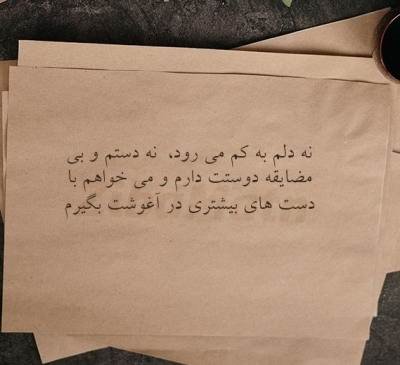 نه دلم به کم می رود، نه دستم و بی
مضایقه دوستت دارم و می خواهم با
دست های بیشتری در آغوشت بگیرم